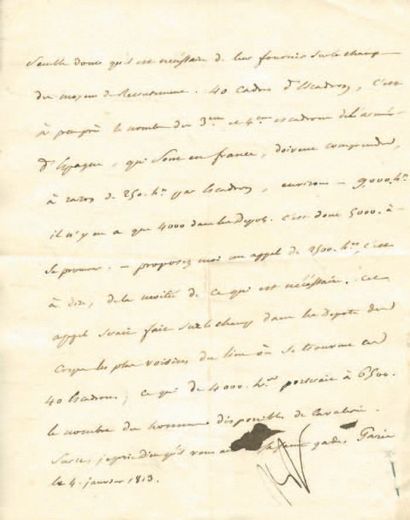 Semble donc qu'il est nécessaire de leur fournir sur le champ
des moyens de Recrutement. 40 Cadres d'Escadrons, c'est
à peu près le nombre des 3.eme et 4.eme escadrons de l'armée
d'Espagne, qui sont en france, doivent comprendre,
à raison de 250. h.es par Escadron, environ - 9,000. h.es
il n'y en a que 4000 dans les Depots. C'est donc 5000. à
Se procurer. - proposez moi un appel de 2500. h.es, c'est
à dire, de la moitié de ce qui est nécéssaire. Cet
appel serait fait sur le champ dans les depots des
Corps les plus voisins du lieu où se trouvent ces
40 Escadrons; ce qui de 4000. h.es porterait à 6500.
le nombre des hommes disponibles de Cavalerie.
Sur ce, je prie Dieu qu'il vous ait en sa sainte garde. Paris
le 4. janvier 1813.